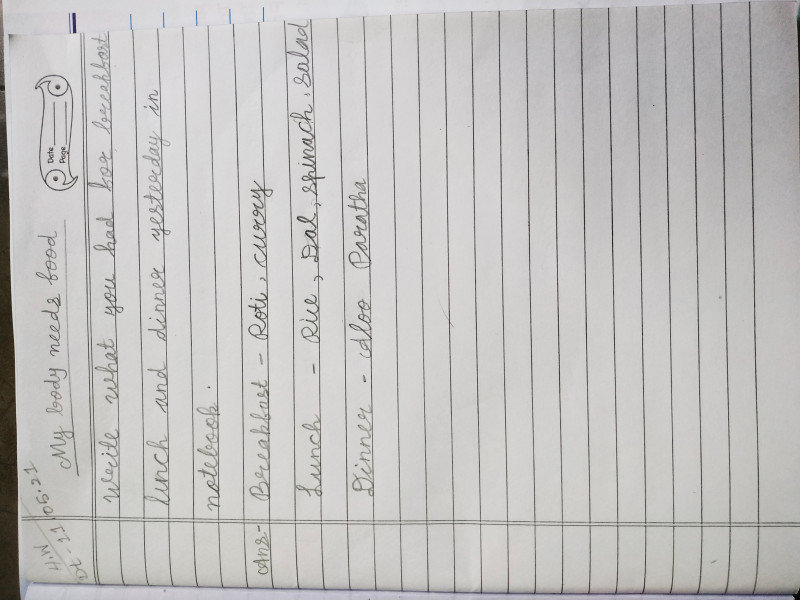 H.W
Dt-11/05.21
My body needs food
Date
Page
Write what you had for breakfast
lunch and dinner yesterday in
notebook.
Ans- Breakfast - Roti, curry
Lunch - Rice, Dal, spinach, salad
Dinner - Aloo Paratha